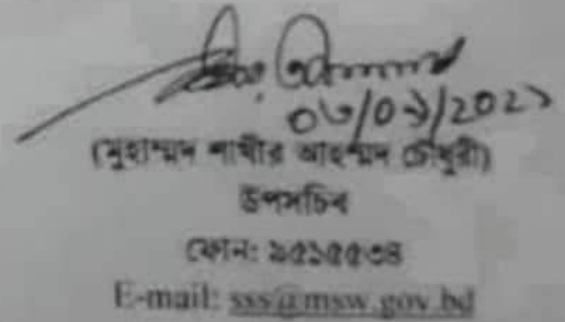 ০৬/০১/২০২১
(মুহাম্মদ শাব্বীর আহম্মদ চৌধুরী)
উপসচিব
ফোন: ৯৫১৫৫৩৪
E-mail: sss@msw.gov.bd